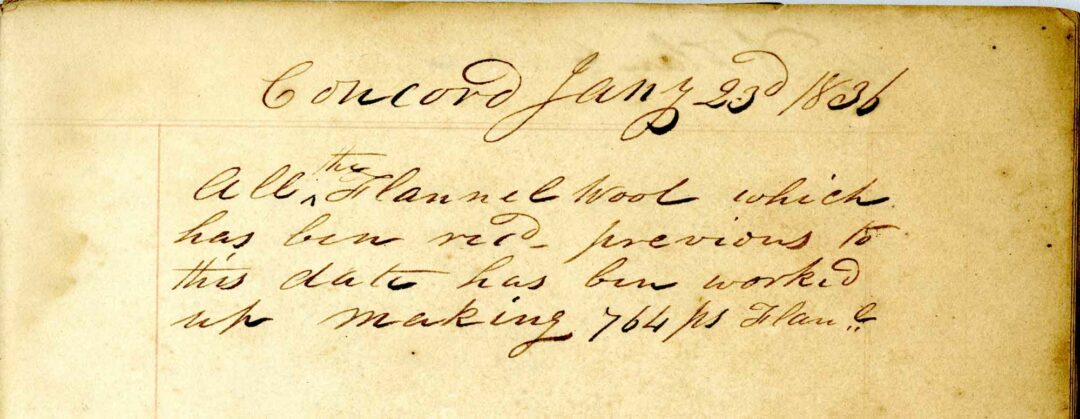 Concord Jany 23d 1836
All the Flannel Wool which
has ben recd previous to
this date has ben worked
up making 764 ps Flanl